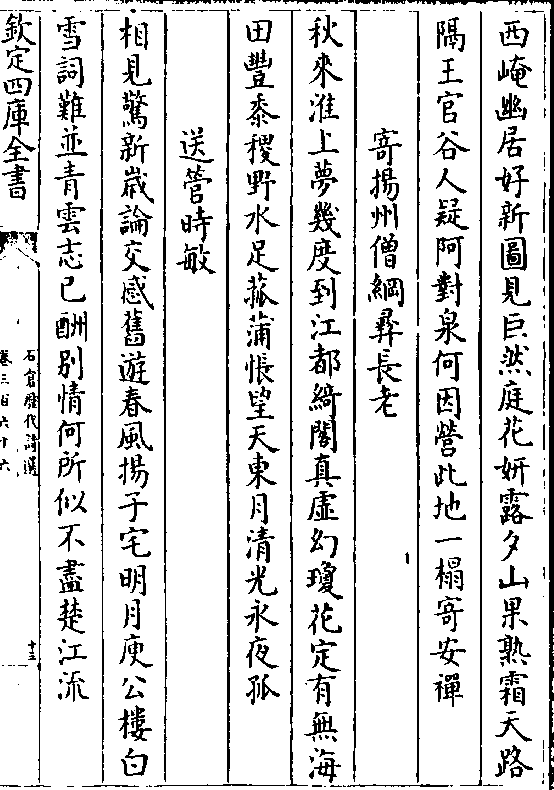 西崦幽居好新圖見巨然庭花妍露夕山果熟霜天路
隔王官谷人疑阿對泉何因營此地一榻寄安禪
寄揚州僧綱彛長老
秋來淮上夢幾度到江都綺閣真虛幻瓊花定有無海
田豐黍稷野水足菰蒲悵望天東月清光永夜孤
送管時敏
相見驚新嵗論交感舊遊春風揚子宅明月庾公樓白
雪詞難並青雲志已酬別情何所似不盡楚江流
欽定四庫全書
石倉歴代詩選
卷三百六十六
十三